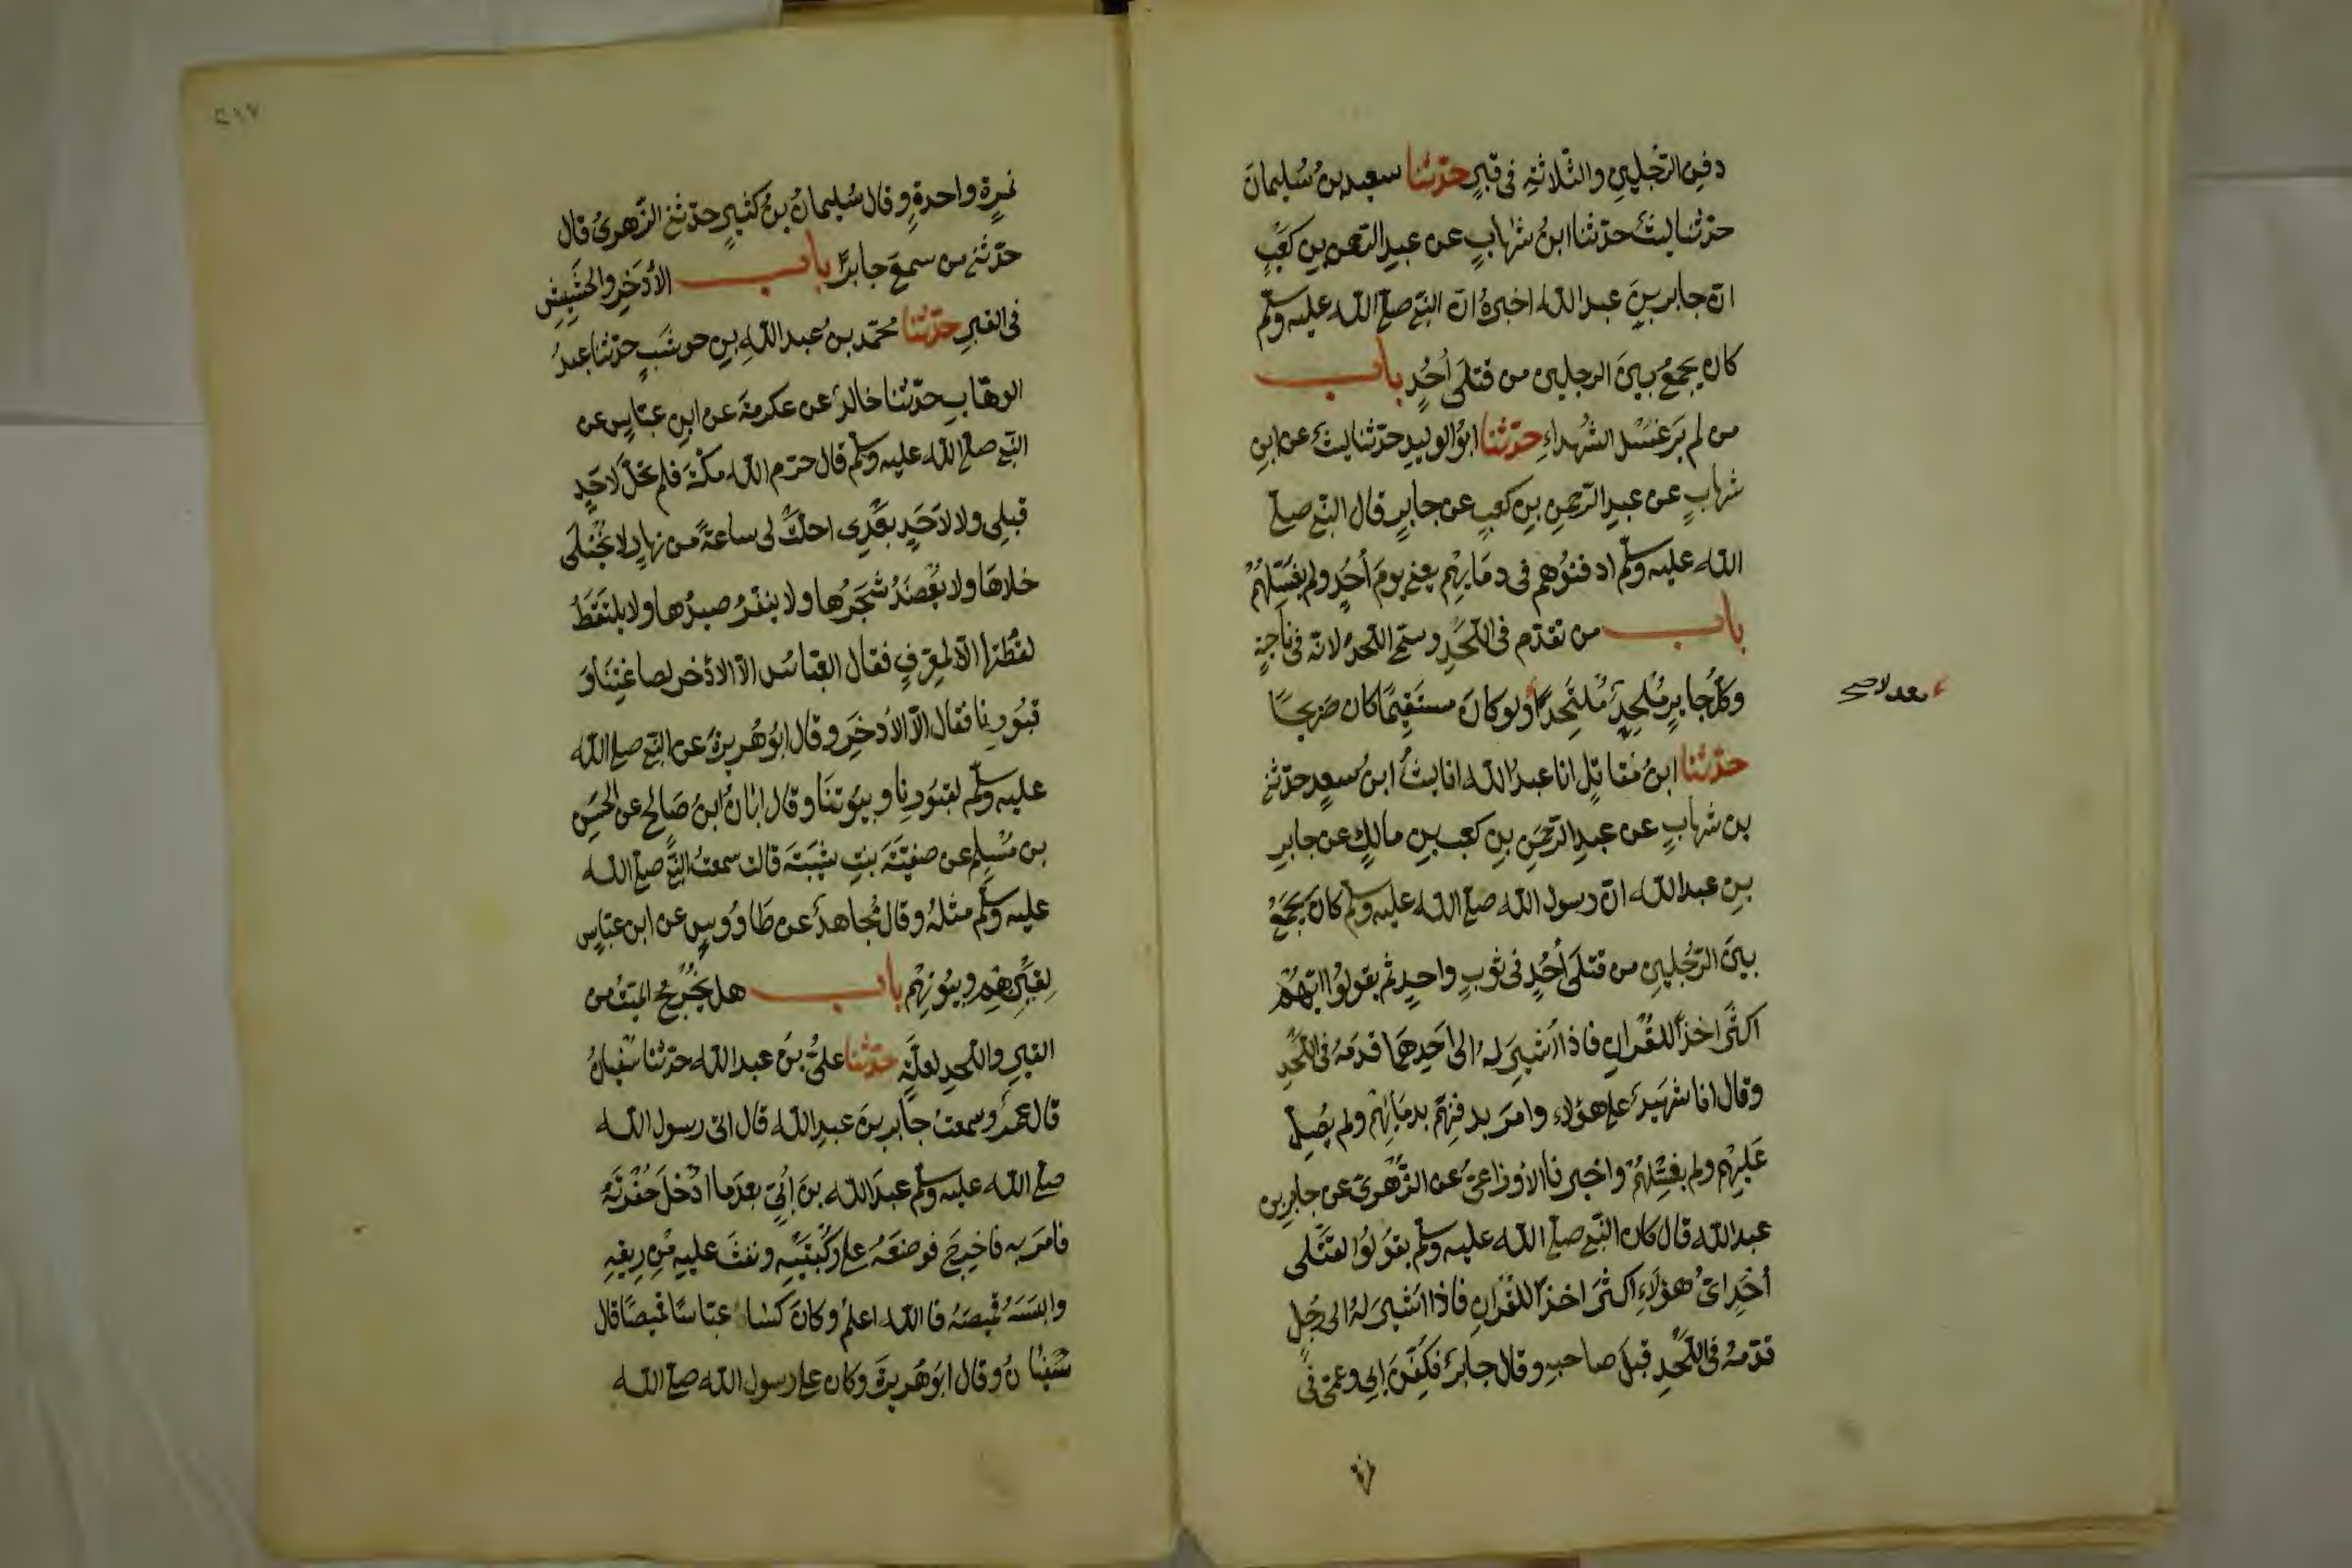 دفن الرّجلين والثّلاثة فى قبرٍ حدّثنا سعيد بن سُليمان
حدّثنا ليثٌ حدّثنا ابنُ شهابٍ عن عبد الرّحمن بن كعبٍ
انّ جابر بن عبد الله اخبرهُ انّ النّبى صلى الله عليه وسلّم
كان يجمعُ بين الرجلين من قتلى أُحُدٍ باب
من لم يَرَ غَسْل الشُهداءِ حدّثنا ابُو الوليدِ حدّثنا ليثٌ عن ابنِ
شهابٍ عن عبدِ الرّحمنِ بنِ كعبٍ عن جابرٍ قال النّبى صلى
الله عليه وسلّم ادفنُوهم فى دمَايهِم يعنى يومَ أُحُدٍ ولم يغسّلهُمْ
باب من تقدّم فى اللّحْدِ وسمّى اللّحدُ لانّه فى ناحيةٍ
وكلُّ جايرٍ مُلحِدٌ مُلتَحَدًا ولو كانَ مستقيمًا كان ضريحًا
معدلا صح
حدّثنا ابنُ مقاتلٍ انا عبدُ الله انا ليثُ ابنُ سعدٍ حدّثنى
بن شهابٍ عن عبدِ الرّحمَنِ بنِ كعبِ بنِ مالكٍ عن جابرِ
بنِ عبد الله انّ رسول الله صلى الله عليه وسلّم كان يجمَعُ
بينَ الرّجُلينِ من قتلَى أُحُدٍ فى ثوبٍ واحدٍ ثم يقولُوا ايّهُمْ
اكثرُ اخذًا للقُرانِ فاذا اُشيرَ لهُ الى احَدِهمَا قدمَهُ فى اللّحْدِ
وقال انا شهيدٌ على هؤلاءِ وامرَ بدفنِهِم بدمَايهِم ولم يُصلِّ
عَليهِم ولم يغسّلهُمْ واخبرنا الأوزاعىُّ عن الزُّهرىّ عن جابرِ بن
عبد الله قال كان النّبى صلى الله عليه وسلّم يقوَلُوا لقتلى
أُحُدٍ اىُّ هؤلاءِ اكثرَ اخذًا للقرانِ فاذا اشيرَ لهُ الى رجُلٍ
قدّمهُ فى اللّحدِ قبلَ صاحبهِ وقال جابرٌ فكُفِّنَ ابى وعمّى فى
نمرة
٢١٧
نمرةٍ واحدةٍ وقال سُليمانُ بنُ كثيرٍ حدّثنى الزّهرىُّ قال
حدّثنى من سمعَ جابرًا باب الأذخِرِ والحشِيشِ
فى القبرِ حدّثنا محمّد بن عبد اللهِ بنِ حوشَبٍ حدّثنا عبدُ
الوهّابِ حدّثنا خالدٌ عن عكرمةَ عن ابنِ عبّاسٍ عن
النّبى صلى الله عليه وسلّم قال حرّم الله مكّةَ فلم تحلَّ لاحَدٍ
قبلى ولا لاحَدٍ بعْدِى احلّتْ لى ساعةً من نهارٍ لا يُختلَى
خلاهَا ولا يُعْضَدُ شجَرُها ولا ينفّرُ صيدُها ولا يلتَقَطُ
لقطتها الّا لمعرّفٍ فقال العبّاسُ الّا الاذْخر لصاغتِنَا وَ
قبُورِنا فقال الّا الأذخِرَ وقال ابُو هُريرةَ عن النّبى صلى الله
عليه وسلّم لقبُورِنا وبيُوتنَا وقال ابَانُ ابنُ صَالحٍ عن الحسَنِ
بن مُسْلمٍ عن صفيّةَ بنتِ شيبَةَ قالت سمعتُ النّبى صلى الله
عليه وسلّم مثلهُ وقال مُجاهدٌ عن طَاوُوسٍ عن ابنِ عبّاسٍ
لِقَيْنِهِم وبيُوتهِمْ باب هل يُخْرَجُ الميّتُ من
القبرِ واللّحدِ لعلّةٍ حدّثنا علىُّ بنُ عبد الله حدّثنا سُفيانُ
قال عمرٌو سمعتُ جابرَ بنَ عبدِ الله قال اتى رسول الله
صلى الله عليه وسلّم عبدَ الله بنَ اُبىٍّ بعدَما اُدْخلَ حُفْرتَهُ
فامرَ به فاُخرِجَ فوضعَهُ على رُكْبتَيْهِ ونفثَ عليهِ من رِيقِهِ
والبسَهُ قميصَهُ فالله اعلمُ وكانَ كسَا عبّاسًا قميصًا قال
سُفيَانُ وقال ابُو هُريرةَ وكان على رسول الله صلى الله